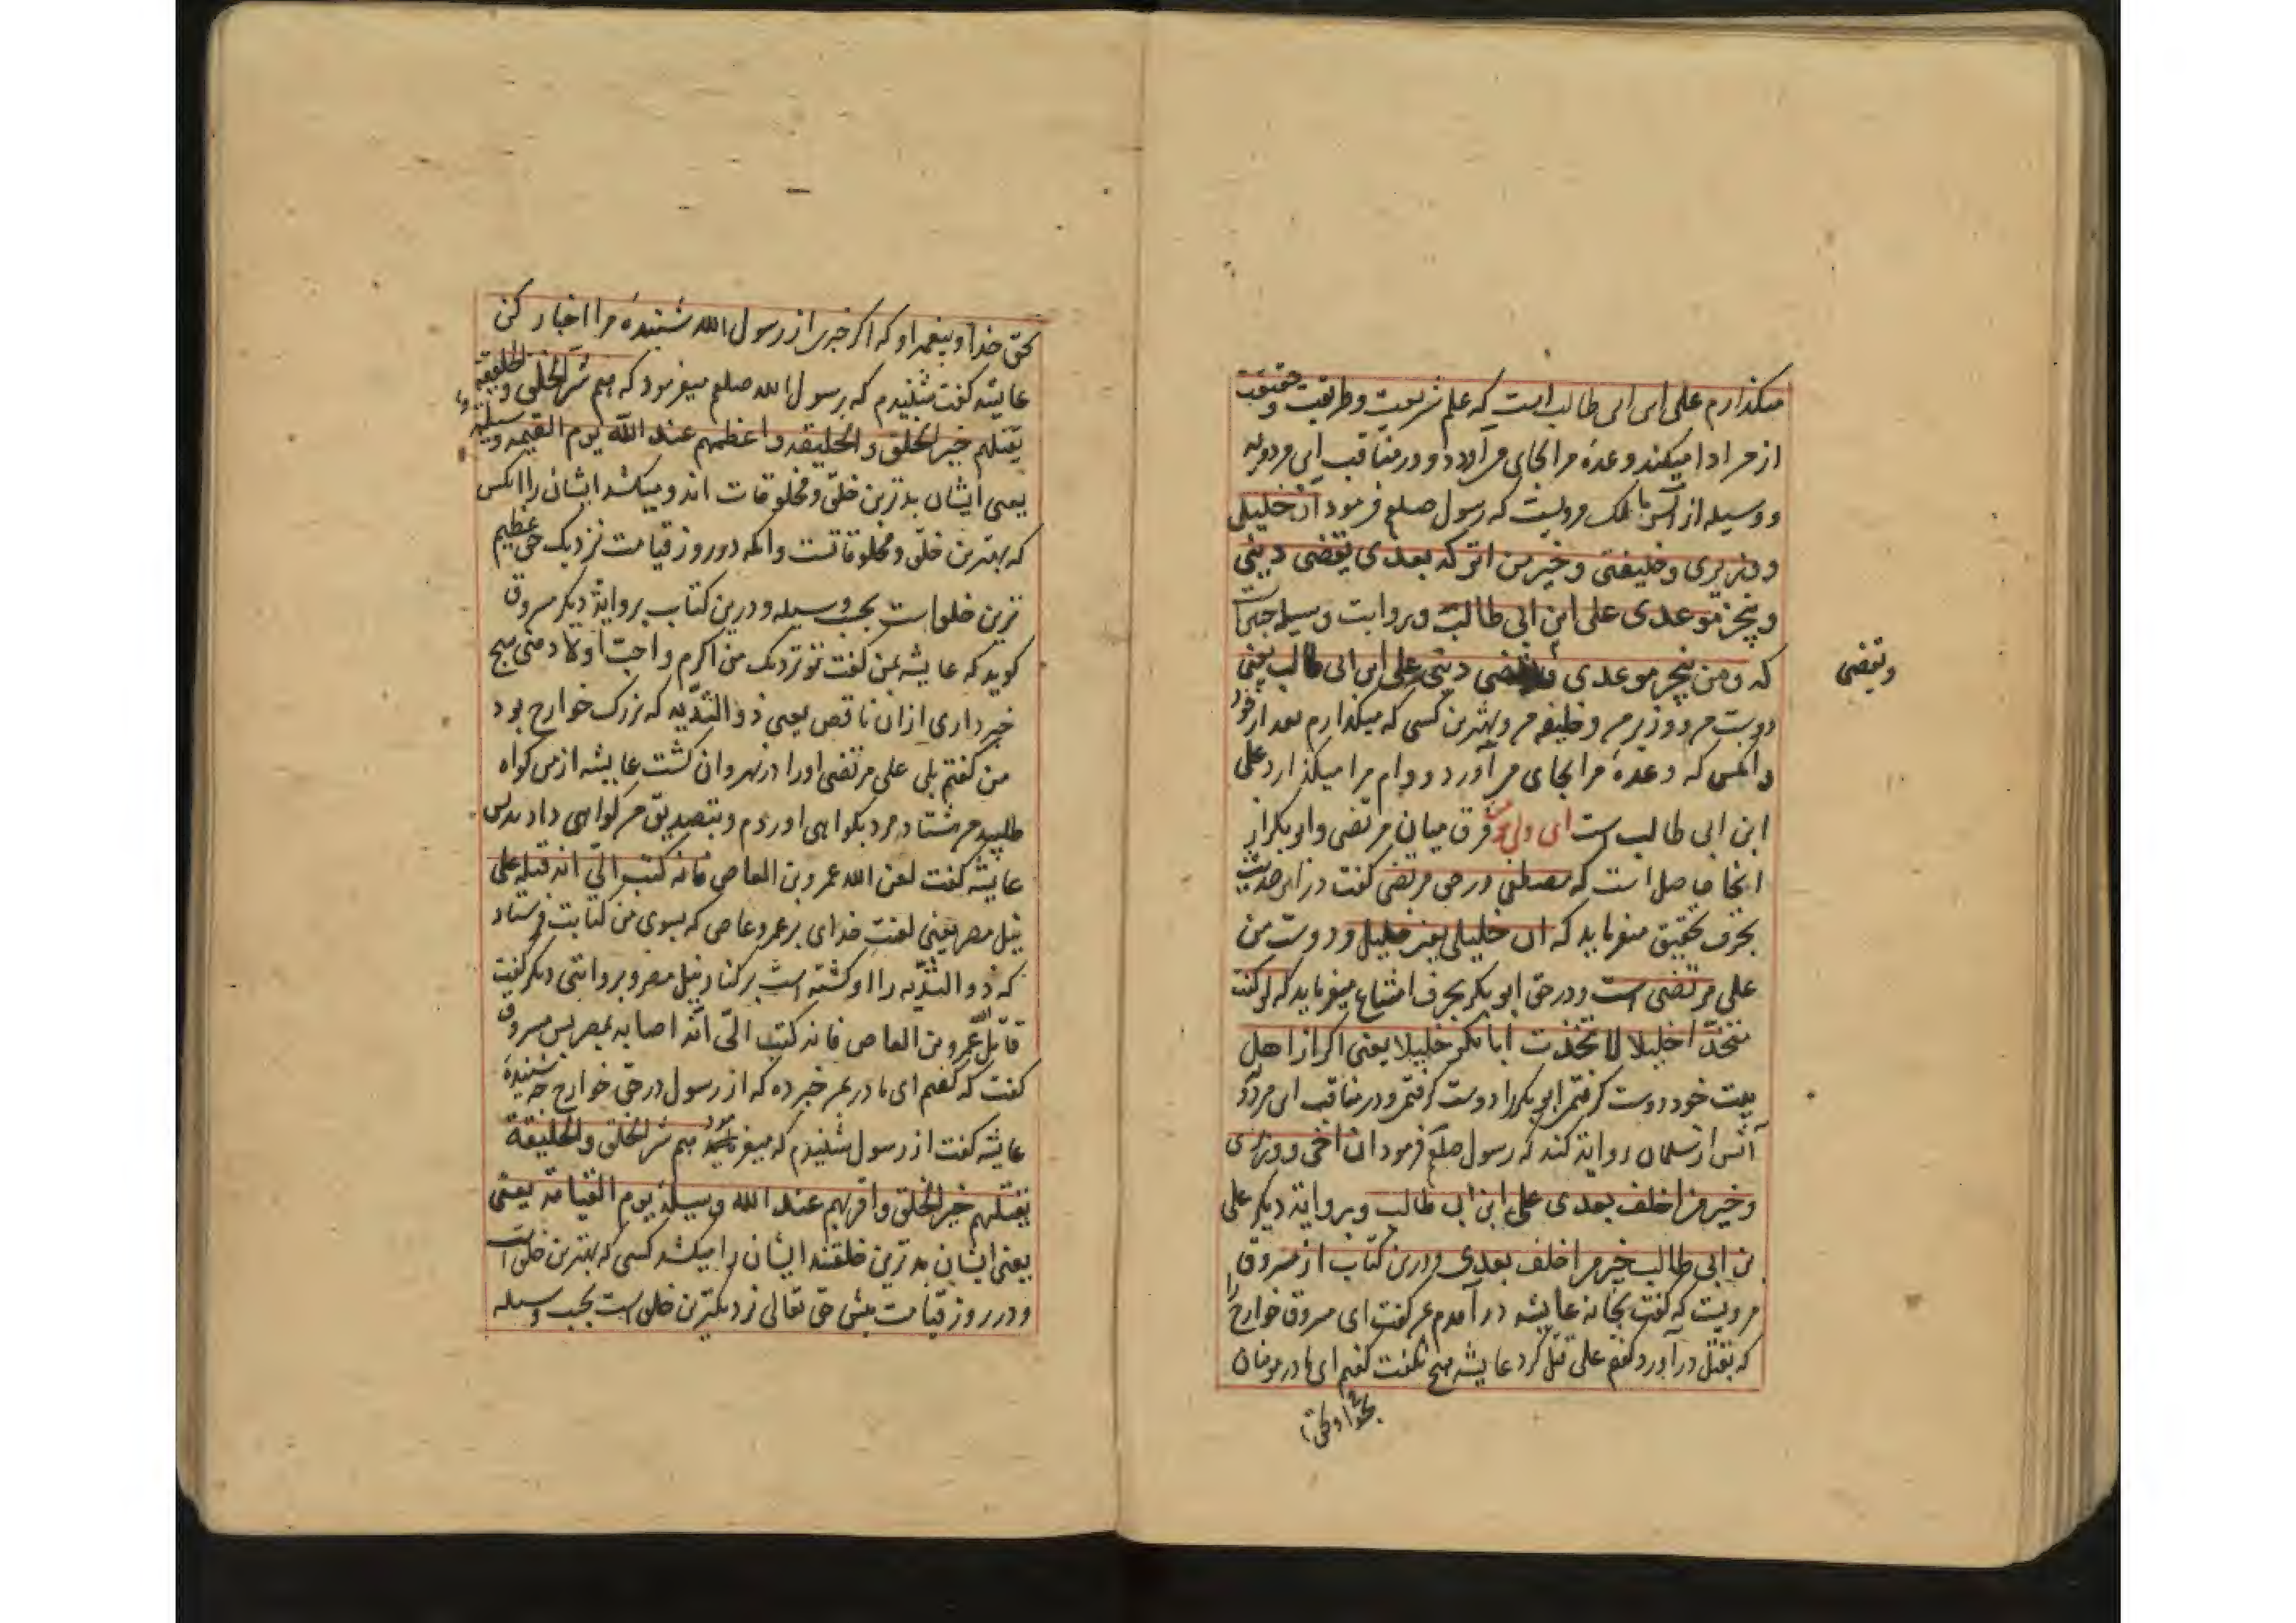 میکذارم علی ابن ابی طالب است که علم شریعت و طریقت و حقیقت
از من ادا میکند و وعدهٔ مرا بجای می آرد و در مناقب ابن مردویه
و وسیله از انس بن مالک مرویست که رسول صلعم فرمود ان خلیلی
و وزیری و خلیفتی و خیر من اترکه بعدی یقضی دینی
و ینجز موعدی علی ابن ابی طالب و بروایت وسیله
که و من ینجز موعدی و یقضی دینی علی ابن ابی طالب یعنی
ویقضی
دوست من و وزیر من و خلیفه من و بهترین کسی که میکذارم بعد از خود
و انکس که وعدهٔ مرا بجای می آورد و وام مرا میکذارد علی
ابن ابی طالب است ای ولی فرق میان مرتضی و ابو بکر از
اینجا حاصل است که مصطفی در حق مرتضی کفت در این حدیث
بحرف تحقیق میفرماید که ان خلیلی یعنی خلیل و دوست من
علی مرتضی است و در حق ابو بکر بحرف امتناع میفرماید که لو کنت
متخذا خلیلا لاتخذت ابا بکر خلیلا یعنی اکر از اهل
بیت خود دوست کرفتمی ابو بکر را دوست کرفتمی و در مناقب ابن مردو
انس از سلمان روایة کند که رسول صلعم فرمود ان اخی و وزیری
و خیر من اخلف بعدی علی ابن ابی طالب و بروایة دیکر علی
بن ابی طالب خیر من اخلف بعدی و درین کتاب از مسروق
مرویست که کفت بخانه عایشه در آمدم کفت ای مسروق خوارج را
که بقتل در آورد کفتم علی قتل کرد عایشه هیچ نکفت کفتم ای مادر مومنان
بحق خدا و پیغمبر او که اکر خبری از رسول الله شنیدهٔ مرا اخبار کن
عایشه کفت شنیدم که رسول الله صلعم میفرمود که هم شر الخلق و الخلیقة
یقتلهم خیر الخلق و الخلیقه و اعظمهم عند الله یوم القیمه وسیلة
یعنی ایشان بدترین خلق و مخلوقات اند و میکشد ایشان را انکس
که بهترین خلق و مخلوقاتست و انکه در روز قیامت نزدیک حق عظیم
ترین خلق است بحسب وسیله و درین کتاب بروایة دیکر مسروق
کوید که عایشه بمن کفت تو نزدیک من اکرم و احب اولاد منی هیچ
خبر داری ازان ناقص یعنی ذو الثدیه که بزرک خوارج بود
من کفتم بلی علی مرتضی او را در نهروان کشت عایشه از من کواه
طلبید من هشتاد مرد بکواهی اوردم و بتصدیق من کواهی دادند پس
عایشه کفت لعن الله عمرو بن العاص فانه کتب الیّ انه قتله علی
نیل مصر یعنی لعنت خدای بر عمرو عاص که بسوی من کتابت فرستاد
که ذو الثدیه را او کشته است بر کنار نیل مصر و بروایتی دیکر کفت
قاتل الله عمرو بن العاص فانه کتب الیّ انه اصابه بمصر پس مسروق
کفت که کفتم ای مادر خبر ده که از رسول در حق خوارج چه شنیدهٔ
عایشه کفت از رسول شنیدم که میفرمود هم شر الخلق و الخلیقة
یقتلهم خیر الخلق و اقربهم عند الله وسیلة یوم القیامة یعنی
یعنی ایشان بدترین خلقند ایشان را میکشد کسی که بهترین خلق است
و در روز قیامت پیش حق تعالی نزدیکترین خلق است بحسب وسیله